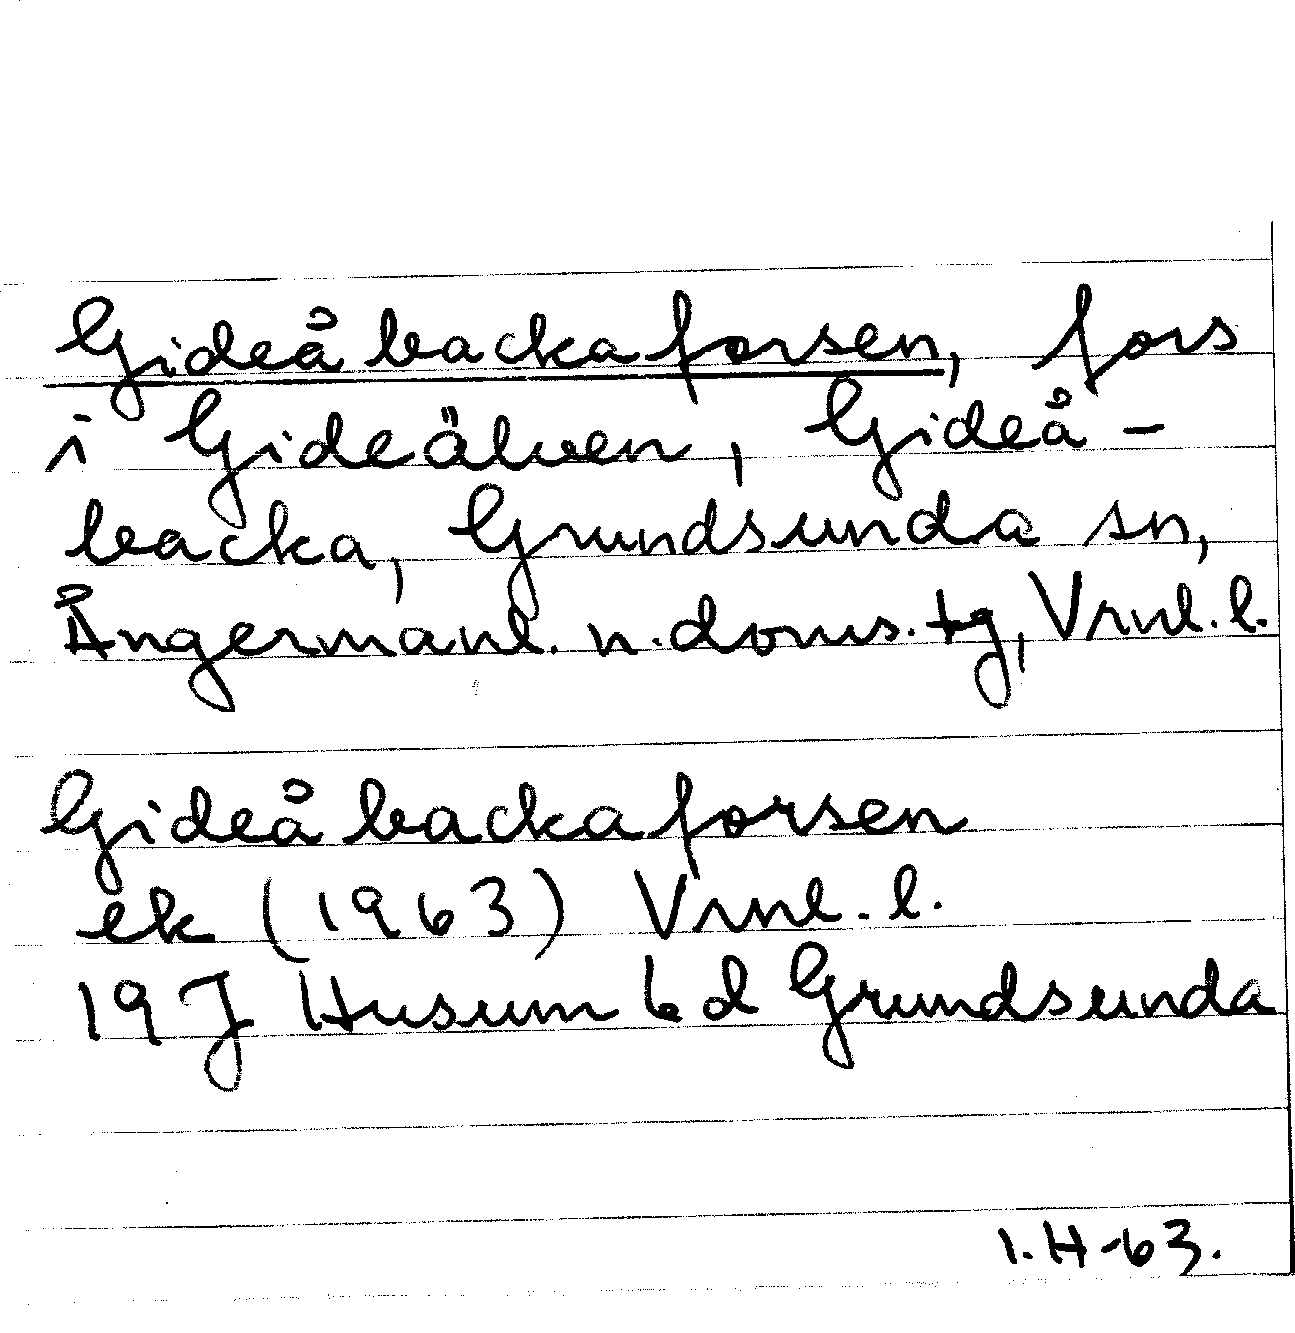 Gideåbackaforsen, fors
i Gideälven, Gideå-
backa, Grundsunda sn,
Ångermanl. n. doms. tg, Vrnl. l.
Gideåbackaforsen
ek (1963) Vrnl. l.
19 J Husum bd Grundsunda
I. H-63.